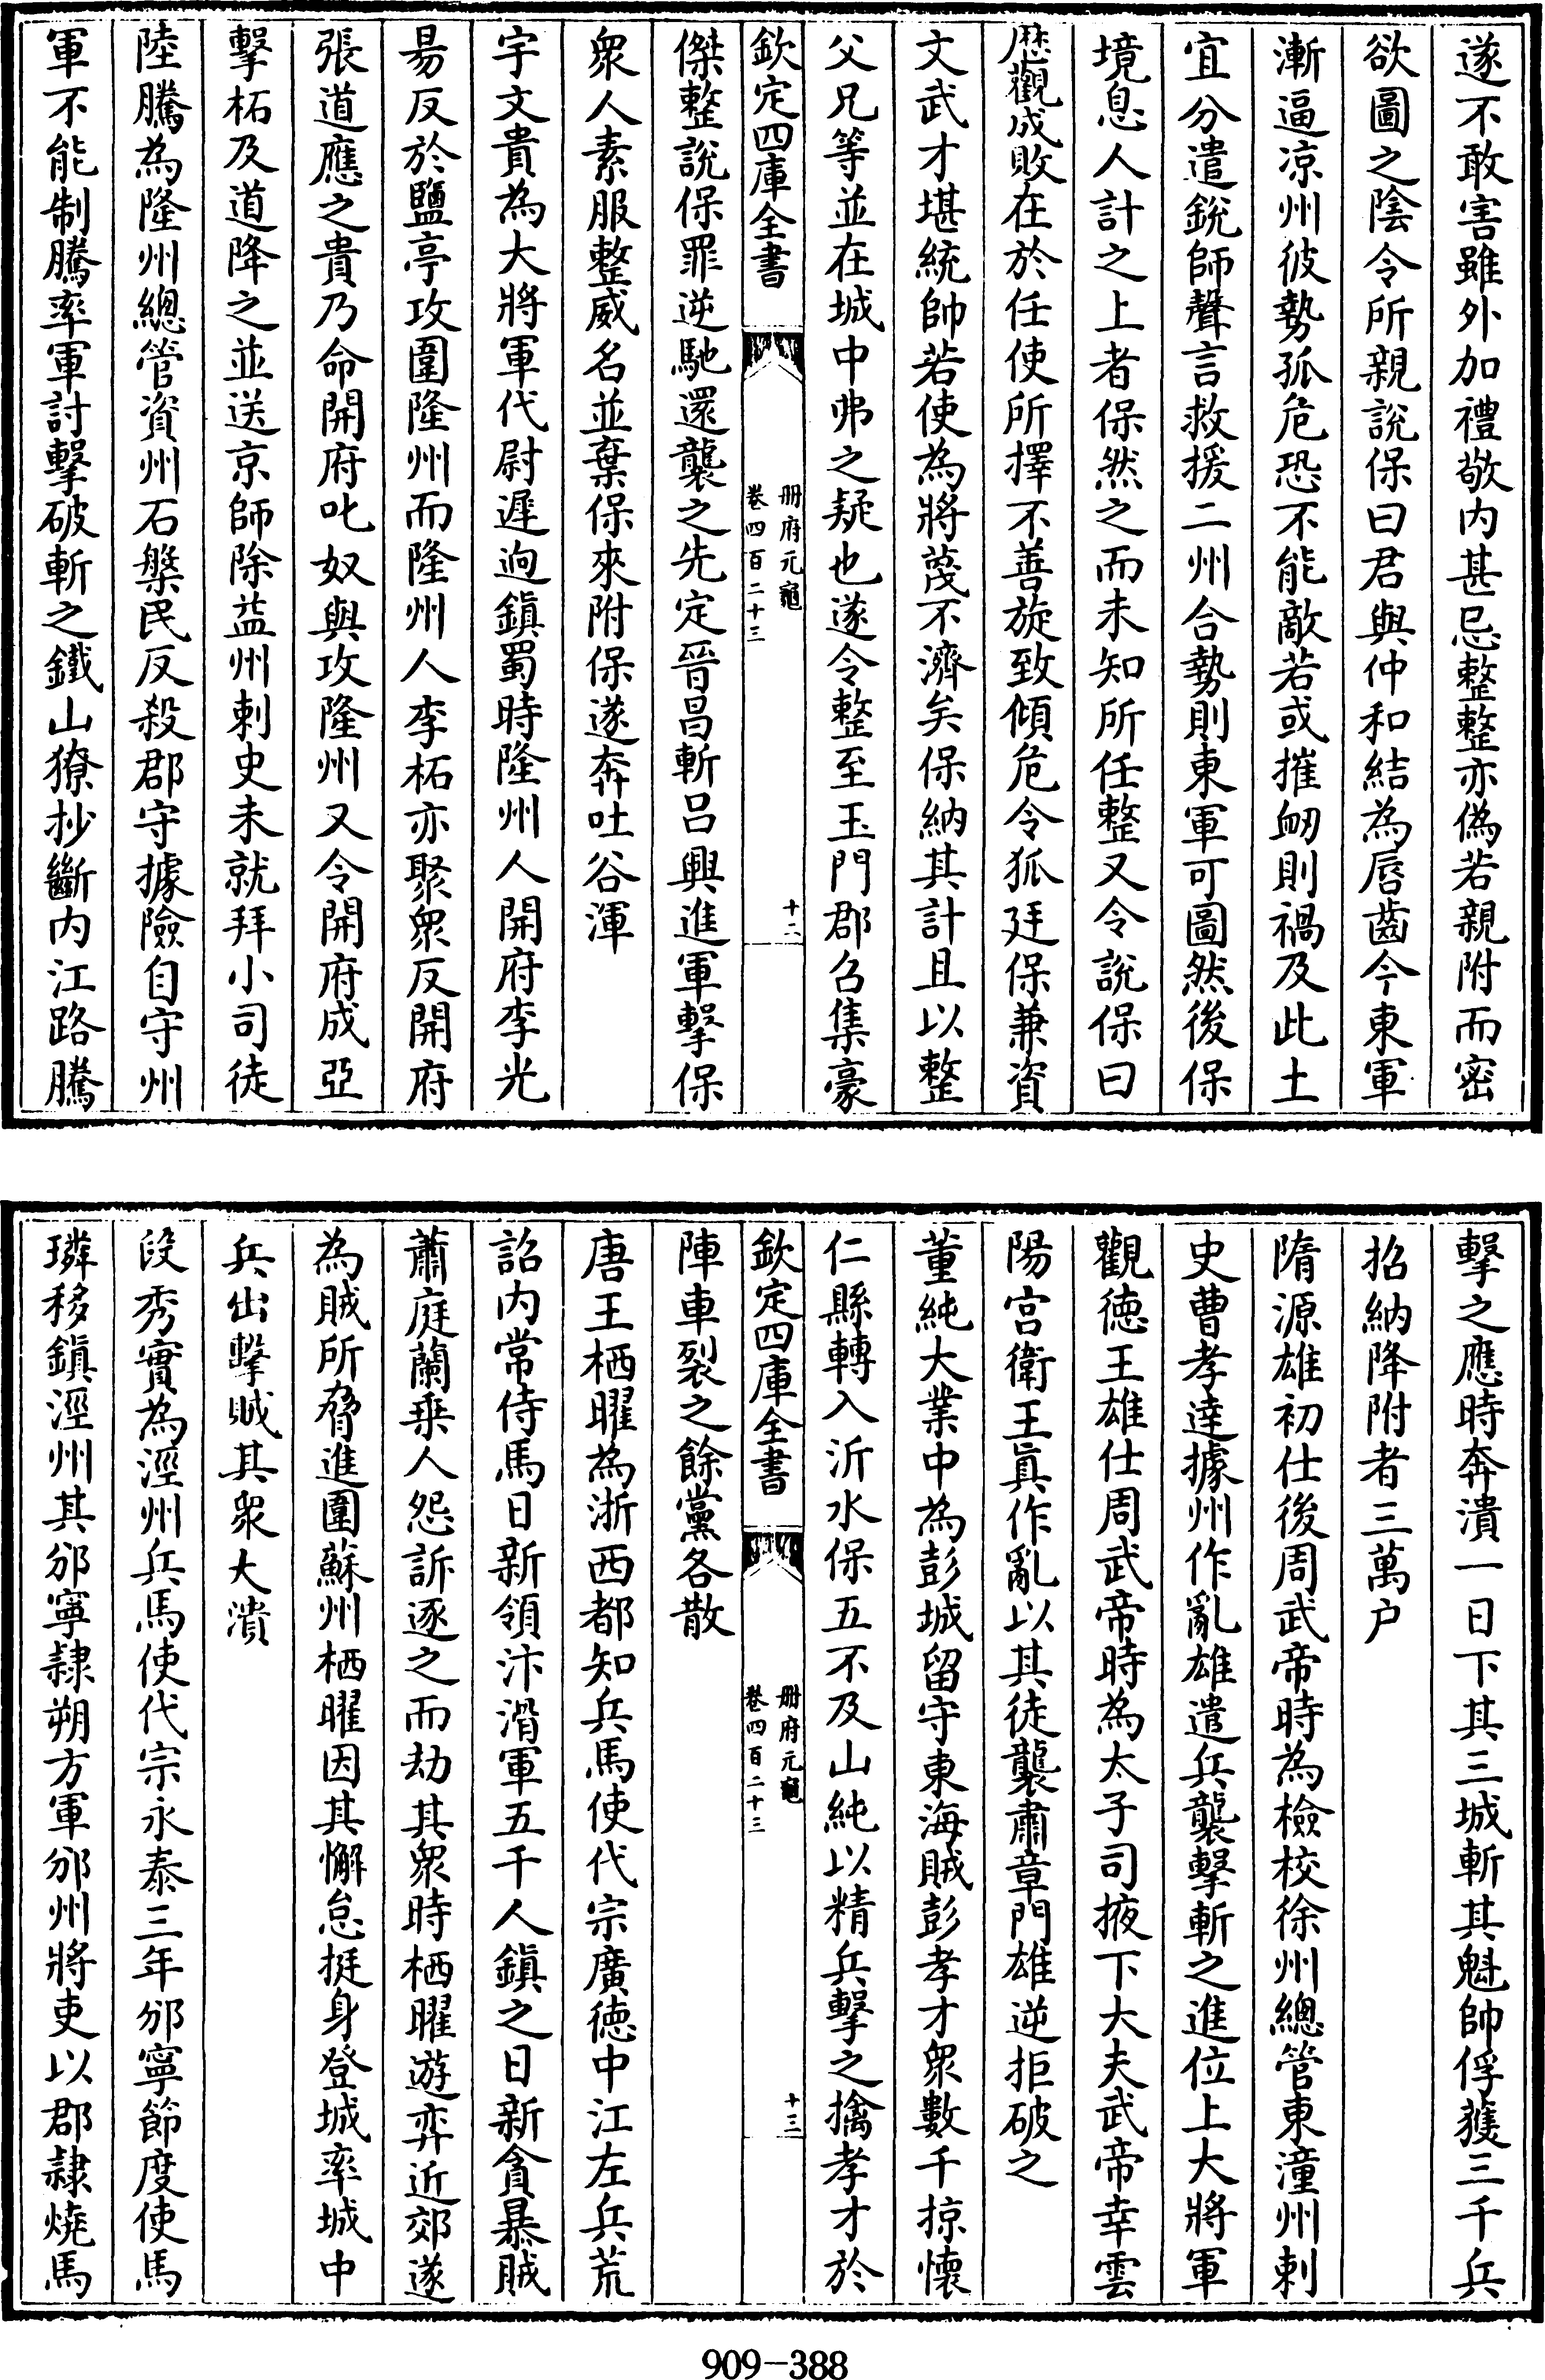 遂不敢害雖外加禮敬内甚忌整整亦偽若親附而密
欲圖之陰令所親說保曰君與仲和結為唇齒今東軍
漸逼凉州彼勢孤危恐不能敵若或摧衂則禍及此土
宜分遣銳師聲言救援二州合勢則東軍可圖然後保
境息人計之上者保然之而未知所任整又令說保曰
歴觀成敗在於任使所擇不善旋致傾危令狐延保兼資
文武才堪統帥若使為將蔑不濟矣保納其計且以整
父兄等並在城中弗之疑也遂令整至玉門郡召集豪
欽定四庫全書
册府元龜
卷四百二十三
十二
傑整說保罪逆馳還襲之先定晉昌斬呂興進軍擊保
衆人素服整威名並棄保來附保遂奔吐谷渾
宇文貴為大將軍代尉遲逈鎮蜀時隆州人開府李光
昜反於鹽亭攻圍隆州而隆州人李柘亦聚衆反開府
張道應之貴乃命開府叱奴與攻隆州又令開府成亞
擊柘及道降之並送京師除益州刺史未就拜小司徒
陸騰為隆州總管資州石槃民反殺郡守據險自守州
軍不能制騰率軍討擊破斬之鐵山獠抄斷内江路騰
擊之應時奔潰一日下其三城斬其魁帥俘獲三千兵
招納降附者三萬户
隋源雄初仕後周武帝時為檢校徐州總管東潼州刺
史曹孝逹據州作亂雄遣兵襲擊斬之進位上大將軍
觀徳王雄仕周武帝時為太子司掖下大夫武帝幸雲
陽宫衛王真作亂以其徒襲肅章門雄逆拒破之
董純大業中為彭城留守東海賊彭孝才衆數千掠懷
仁縣轉入沂水保五不及山純以精兵擊之擒孝才於
欽定四庫全書
册府元龜
卷四百二十三
十三
陣車裂之餘黨各散
唐王栖曜為浙西都知兵馬使代宗廣徳中江左兵荒
詔内常侍馬日新領汴滑軍五千人鎮之日新貪暴賊
蕭庭蘭乗人怨訴逐之而劫其衆時栖曜遊弈近郊遂
為賊所脅進圍蘇州栖曜因其懈怠挺身登城率城中
兵出擊賊其衆大潰
段秀實為涇州兵馬使代宗永泰三年邠寧節度使馬
璘移鎮涇州其邠寧隷朔方軍邠州將吏以郡隷燒馬
909-388